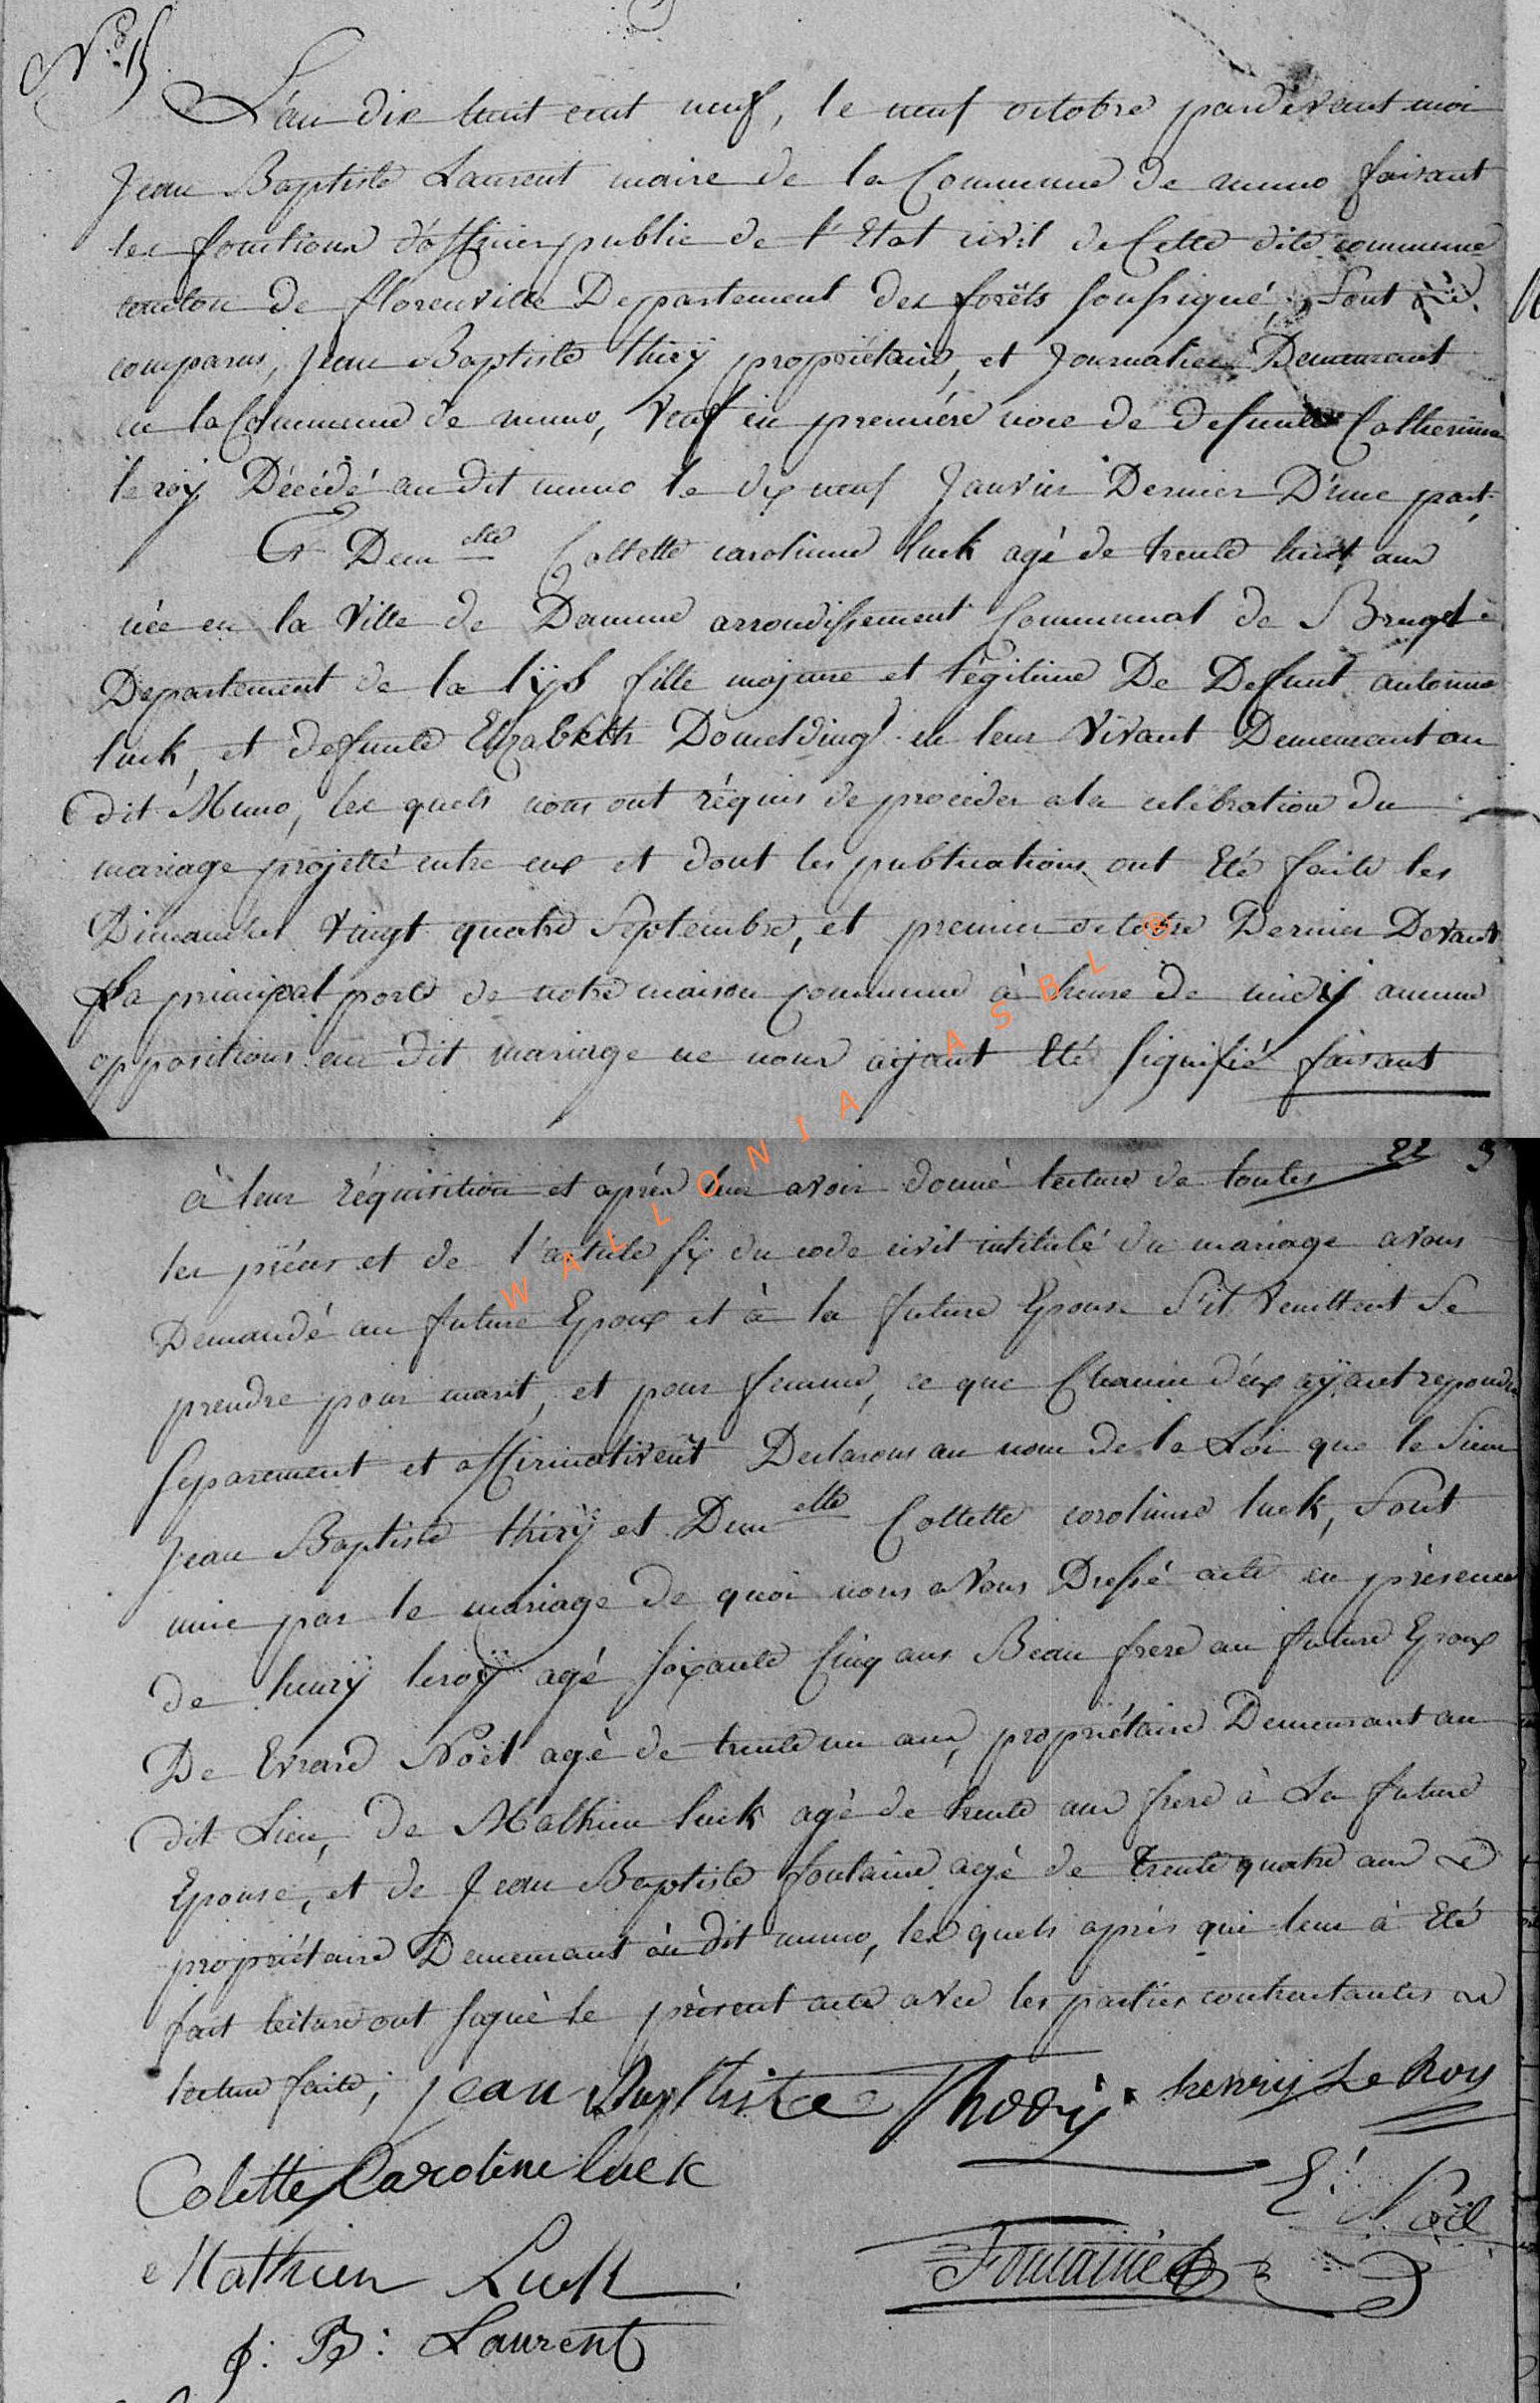 N° 15
L'an dix huit cent neuf, le neuf octobre pardevant moi
Jean Baptiste Laurent maire de la Commune de muno faisant
les fonctions d'officier public de l'Etat civil de Cette dite commune
canton de florenville Departement des forêts soussigné, Sont
comparus, Jean Baptiste thirÿ propriétaire, et Journalier Demeurant
en la Commune de muno, Veuf en premiére noce de defunte Catherinne
le roÿ Décédé au dit muno le dix neuf Janvier Dernier D'une part
Et Dem elle Collette carolinne luck agé de trente huit ans
née en la Ville de Damme arrondissement Communal de Bruge
Departement de la lÿs fille majeure et légitime De Defunt antoinne
luck, et defunte Elizabeth Domelding en leur Vivant Demeurant au
dit Muno, les quels nous ont réquis de procéder a la celebration du
mariage projetté entre eux et dont les publications ont Eté faite les
Dimanches Vingt quatre Septembre, et premier octobre Dernier Devant
la principal porte de notre maison commune à heure de midÿ aucune
oppositions au dit mariage ne nous aÿant Eté signifié faisant
22
à leur réquisition et aprés leur avoir donné lecture de toutes
les piéces et de l'article six du code civil intitulé du mariage avons
Demandé au future Epoux et à la future Epouse S'il Veuillent Se
prendre pour marit, et pour femme, ce que Chacun d'eux aÿant repondu
Separement et affirmativent Declarons au nom de la Loi que le Sieur
Jean Baptiste thirÿ et Dem elle Collette carolinne luck, Sont
unie par le mariage de quoi nous avons Dressé acte en présence
de henrÿ leroÿ agé soixante Cinq ans Beau frere au future Epoux
De Evrard Noël agé de trente un ans, propriétaire Demeurant au
dit Lieu, de Mathieu luck agé de trente ans frere à La future
Epouse, et de Jean Baptiste fontaine agé de trente quatre ans
propriétaire Demeurant au dit muno, les quels aprés qui leur à Eté
fait lecture ont signé le présent acte avec les parties contractantes
lecture faite; Jean Baptiste Thiry henry Le Roy
Colette Caroline luck
E. Noël
Mathieu Luck
Fontaine
J: B: Laurent
WALLONIA ASBL ®